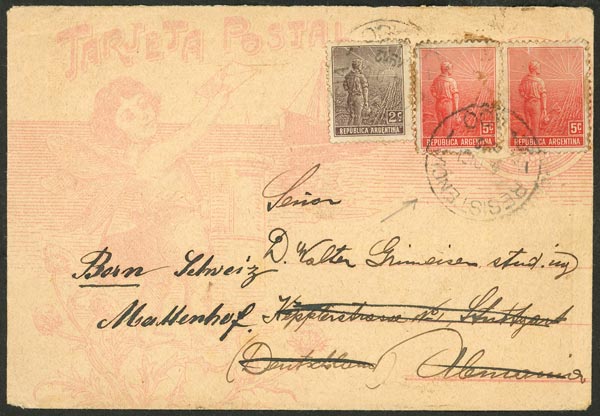 TARJETA POSTAL
2c
REPUBLICA ARGENTINA
5c
REPUBLICA ARGENTINA
5c
REPUBLICA ARGENTINA
RESISTENCIA
Señor
D. Walter Grimeisen stud. ing
Bern Schweiz
Mattenhof.
Kepplerstrasse Stuttgart
(Deutschland) Alemania